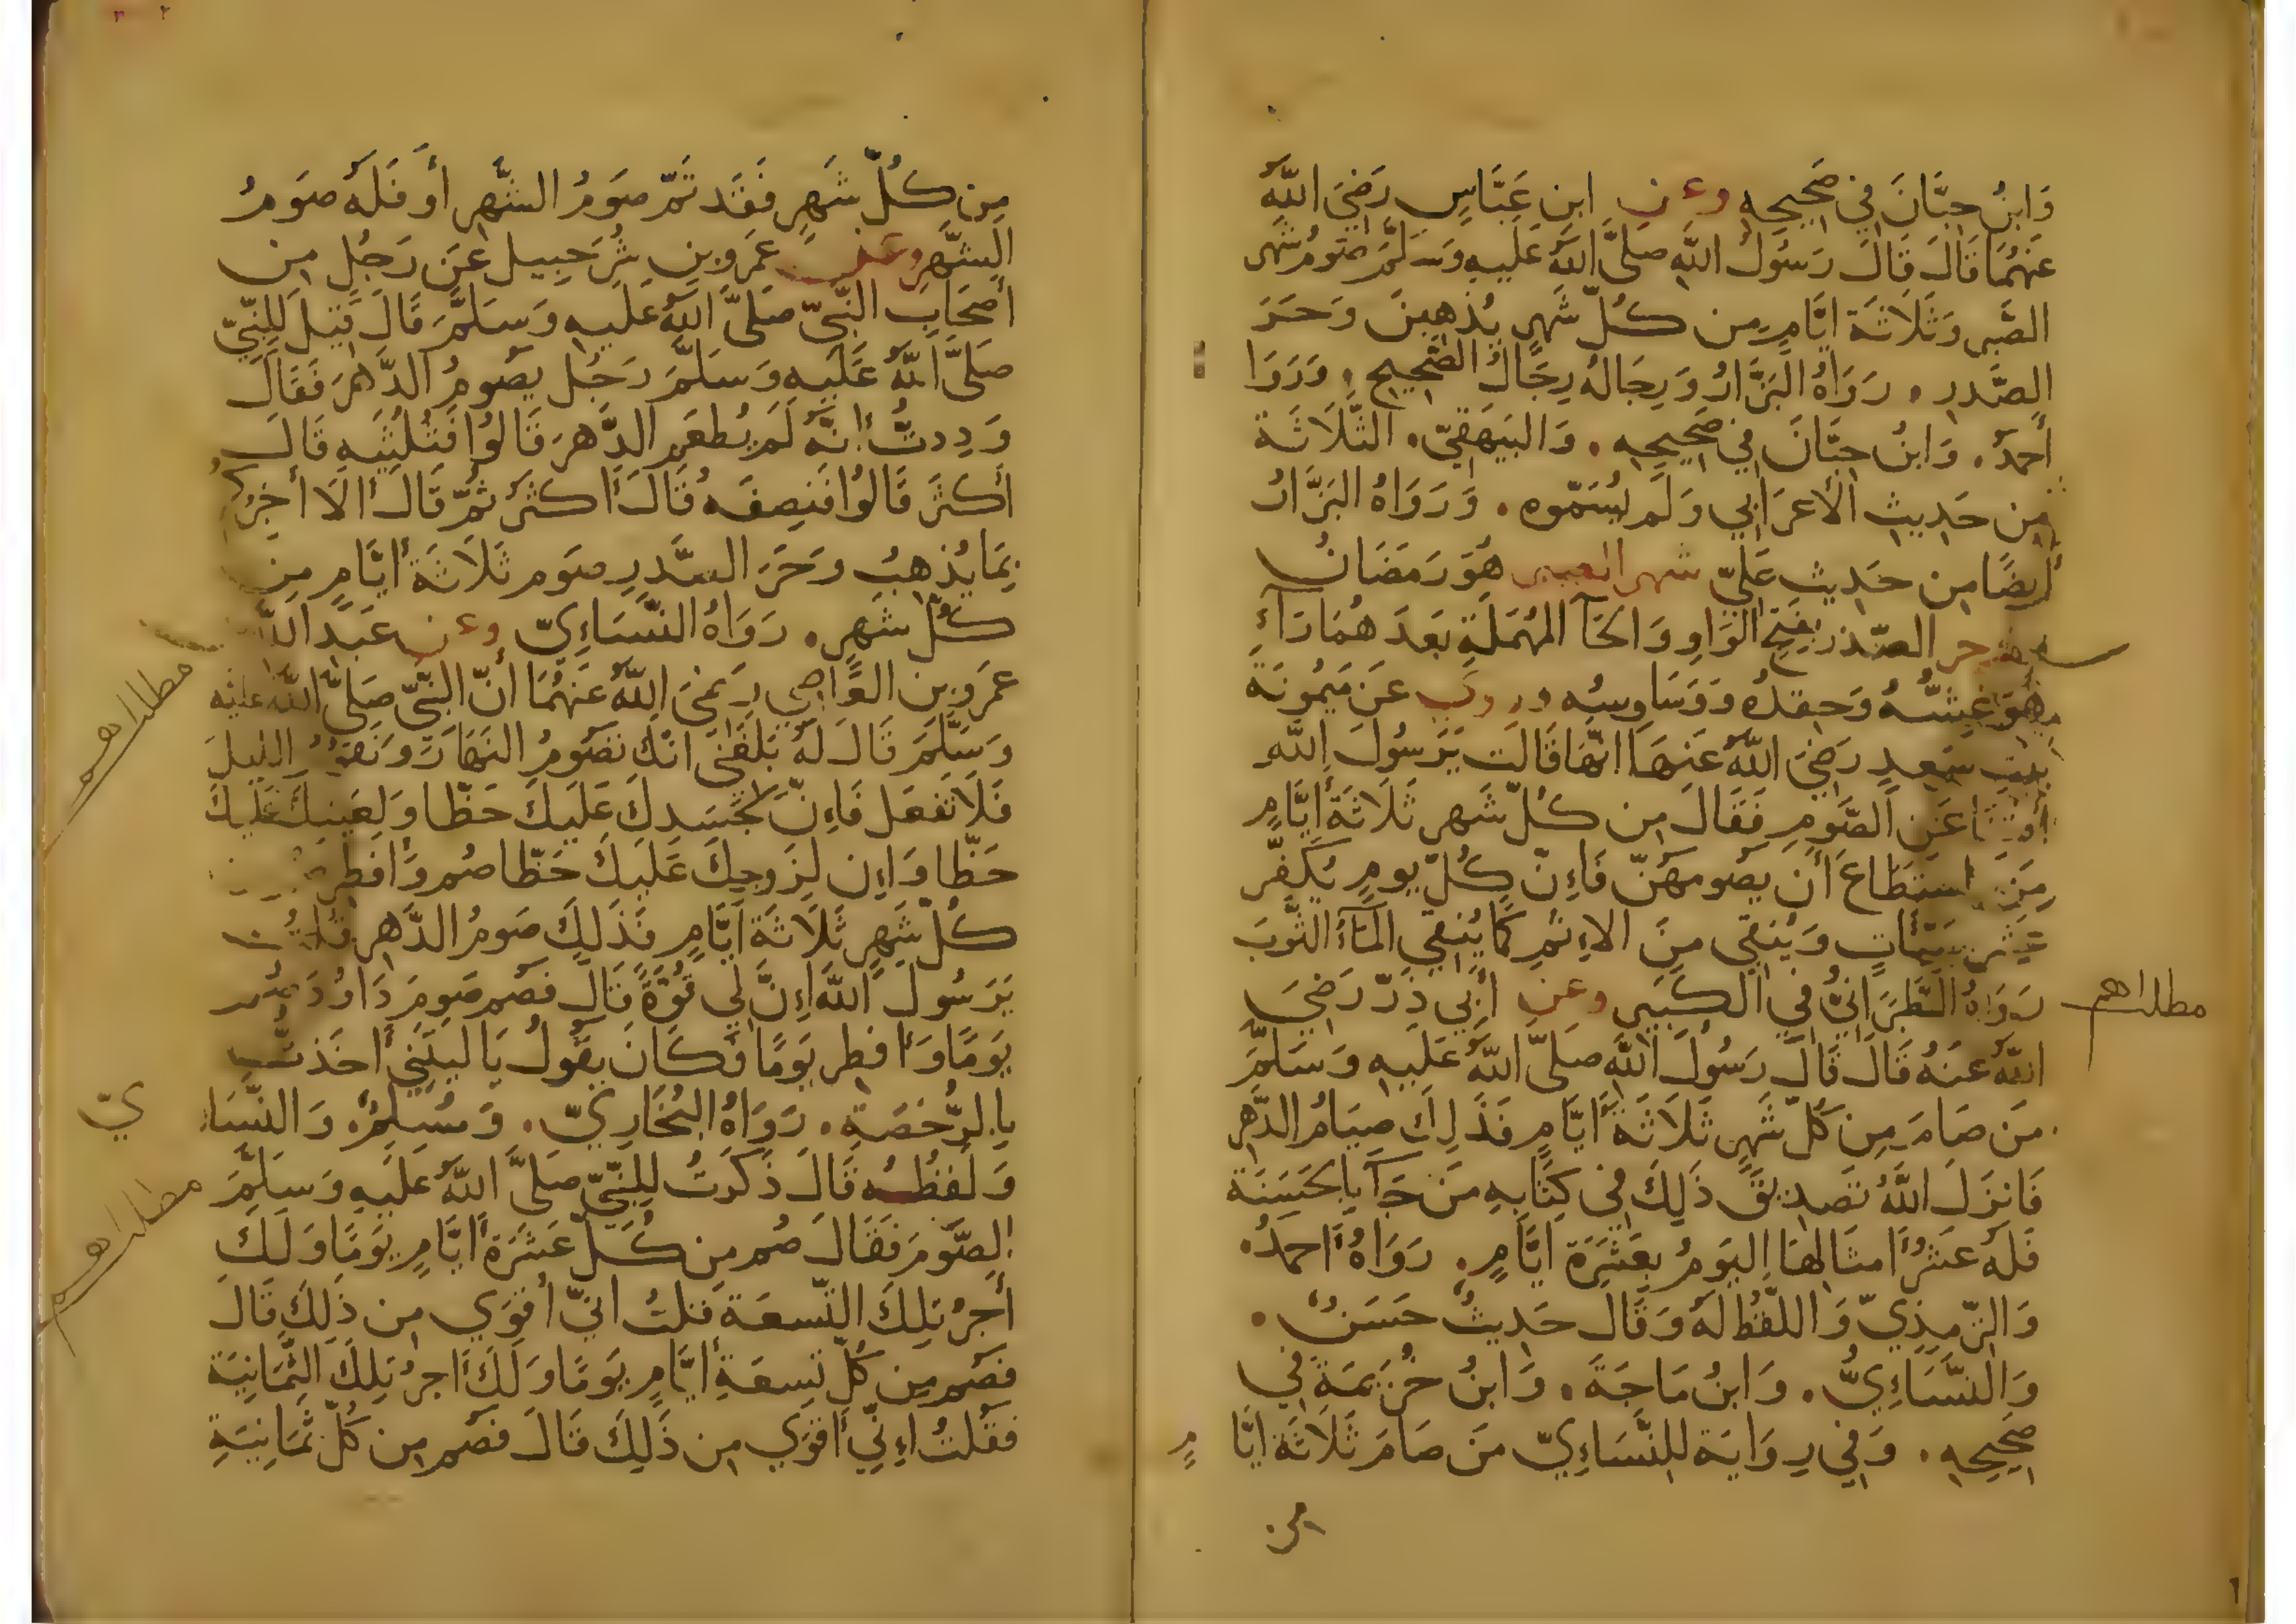 وَابنُ حِبَّانَ فِي صَحِيحِهِ وعن ابنِ عَبَّاسٍ رَضِيَ اللهُ
عَنهُمَا قَالَ قَالَ رَسُولُ اللهِ صَلَّى اللهُ عَلَيهِ وَسَلَّمَ صَومُ شَهرِ
الصَّبرِ وَثَلَاثَةِ أيَّامٍ مِن كُلِّ شَهرٍ يُذهِبنَ وَحَرَ
الصَّدرِ . رَوَاهُ البَزَّارُ وَرِجَالُهُ رِجَالُ الصَّحِيحِ . وَرَوَا
أحمَدُ . وَابنُ حِبَّانَ فِي صَحِيحِهِ . وَالبَيهَقِيّ . الثَّلَاثَة
مِن حَدِيثِ الأعرَابِي وَلَم يُسَمّوه . وَرَوَاهُ البَزَّارُ
أيضًا مِن حَدِيثِ عَلِيّ شهر الصبر هُوَ رَمَضَانُ
وحر الصّدر بِفَتحِ الوَاوِ وَالحَآ المُهمَلَةِ بَعدَهُمَا رَآءٌ
هُوَ غِشُّهُ وَحِقدُهُ وَوَسَاوِسُه وروي عَن مَيمُونَة
بِنتِ سَعدٍ رَضِيَ اللهُ عَنهَا انَّهَا قَالَت يَرَسُولَ اللهِ
أفتنا عَنِ الصَّومِ فَقَالَ مِن كُلِّ شَهرٍ ثَلَاثَةَ أيَّامٍ
مَنِ استَطَاعَ أن يَصُومَهُنّ فَاِنّ كُلّ يومٍ يُكَفِّر
عَشرَ سَيِّئَاتٍ وَيُنقِي مِنَ الاِثمِ كَمَا يُنقِي المَآءُ الثَّوبَ
رَوَاهُ الطَّبَرَانِيُّ فِي الكَبِيرِ وعن أبِي ذَرّ رَضِيَ
مطلب اهم
اللهُ عَنهُ قَالَ قَالَ رَسُولُ اللهِ صَلَّى اللهُ عَلَيهِ وَسَلَّمَ
مَن صَامَ مِن كُلّ شَهرٍ ثَلَاثَةَ أيَّامٍ فَذَلِكَ صِيَامُ الدَّهرِ
فَانزَلَ اللهُ تَصدِيقَ ذَلِكَ فِي كِتَابِهِ مَن جَآ بِالحَسَنَة
فَلَهُ عَشرُ أمثَالِهَا اليَومُ بِعَشَرَةِ أيَّامٍ . رَوَاهُ أحمَدُ .
وَالتِّرمِذِيّ وَاللَّفظُ لَهُ وَقَالَ حَدِيثٌ حَسَنٌ .
وَالنَّسَاءِيُّ . وَابنُ مَاجَةَ . وَابنُ خُزَيمَةَ فِي
صَحِيحِهِ . وَفِي رِوَايَة لِلنَّسَاءِيّ مَن صَامَ ثَلَاثَةَ أيَّا مٍ
مِن
مِن كُلِّ شَهرٍ فَقَد تَمّ صَومُ الشَّهرِ أو فَلَهُ صَومُ
الشَّهرِ وعن عَمرِو بنِ شُرَحبِيل عَن رَجُلٍ مِن
أصحَابِ النَّبِيّ صَلَّى اللهُ عَلَيهِ وَسَلَّمَ قَالَ قِيلَ لِلنَّبِيّ
صَلَّى اللهُ عَلَيهِ وَسَلَّمَ رَجُل يَصُومُ الدَّهرَ فَقَالَ
وَدِدتُّ انَّهُ لَم يُطعَمِ الدَّهرَ قَالُوا فَثُلُثَيهِ قَالَ
أكثَرَ قَالُوا فَنِصفَهُ قَالَ أكثَرَ ثُمّ قَالَ ألَا أخبِرُكُم
بِمَا يُذهِبُ وَحَرَ الصَّدرِ صَوم ثَلَاثَةَ أيَّامٍ مِن
كُلِّ شَهرٍ . رَوَاهُ النَّسَاءِيّ وعن عَبدِ اللهِ بن
عَمرِو بنِ العَاصِي رَضِيَ اللهُ عَنهُمَا أنّ النَّبِيّ صَلَّى اللهُ عَلَيه
مطلب اهم
وَسَلَّمَ قَالَ لَهُ بَلَغَنِي انّكَ تَصُومُ النَّهَارَ وَتَقُومُ اللَّيلَ
فَلَا تَفعَل فَاِنّ لِجَسَدِكَ عَلَيكَ حَظّا وَلِعَينِكَ عَلَيكَ
حَظّا وَاِن لِزَوجِكَ عَلَيكَ حَظّا صُم وَأفطِر
كُلِّ شَهرٍ ثَلَاثَةَ أيَّامٍ فَذَلِكَ صَومُ الدَّهرِ قُلتُ
يَرَسُولَ اللهِ اِنّ لِي قُوّةً قَالَ فَصُم صَومَ دَاوُدَ صُم
يَومًا وَأفطِر يَومًا فَكَانَ يَقُولُ يَا لَيتَنِي أخَذتُ
بِالرُّخصَةِ . رَوَاهُ البُخَارِيّ . وَمُسلِمٌ . وَالنَّسَاءِيّ
وَلَفظُه قَالَ ذَكَرتُ لِلنَّبِيّ صَلَّى اللهُ عَلَيهِ وَسَلَّمَ
مطلب اهم
الصَّومَ فَقَالَ صُم مِن كُلِّ عَشَرَةِ أيَّامٍ يَومًا وَلَكَ
أجرُ تِلكَ التِّسعَة قُلتُ انّي أقوَي مِن ذَلِكَ قَالَ
فَصُم مِن كُلّ تِسعَةِ أيَّامٍ يَومًا وَلَكَ أجرُ تِلكَ الثَّمَانِيَة
فَقُلتُ اِنّي أقوَي مِن ذَلِكَ قَالَ فَصُم مِن كُلّ ثَمَانِيَةِ